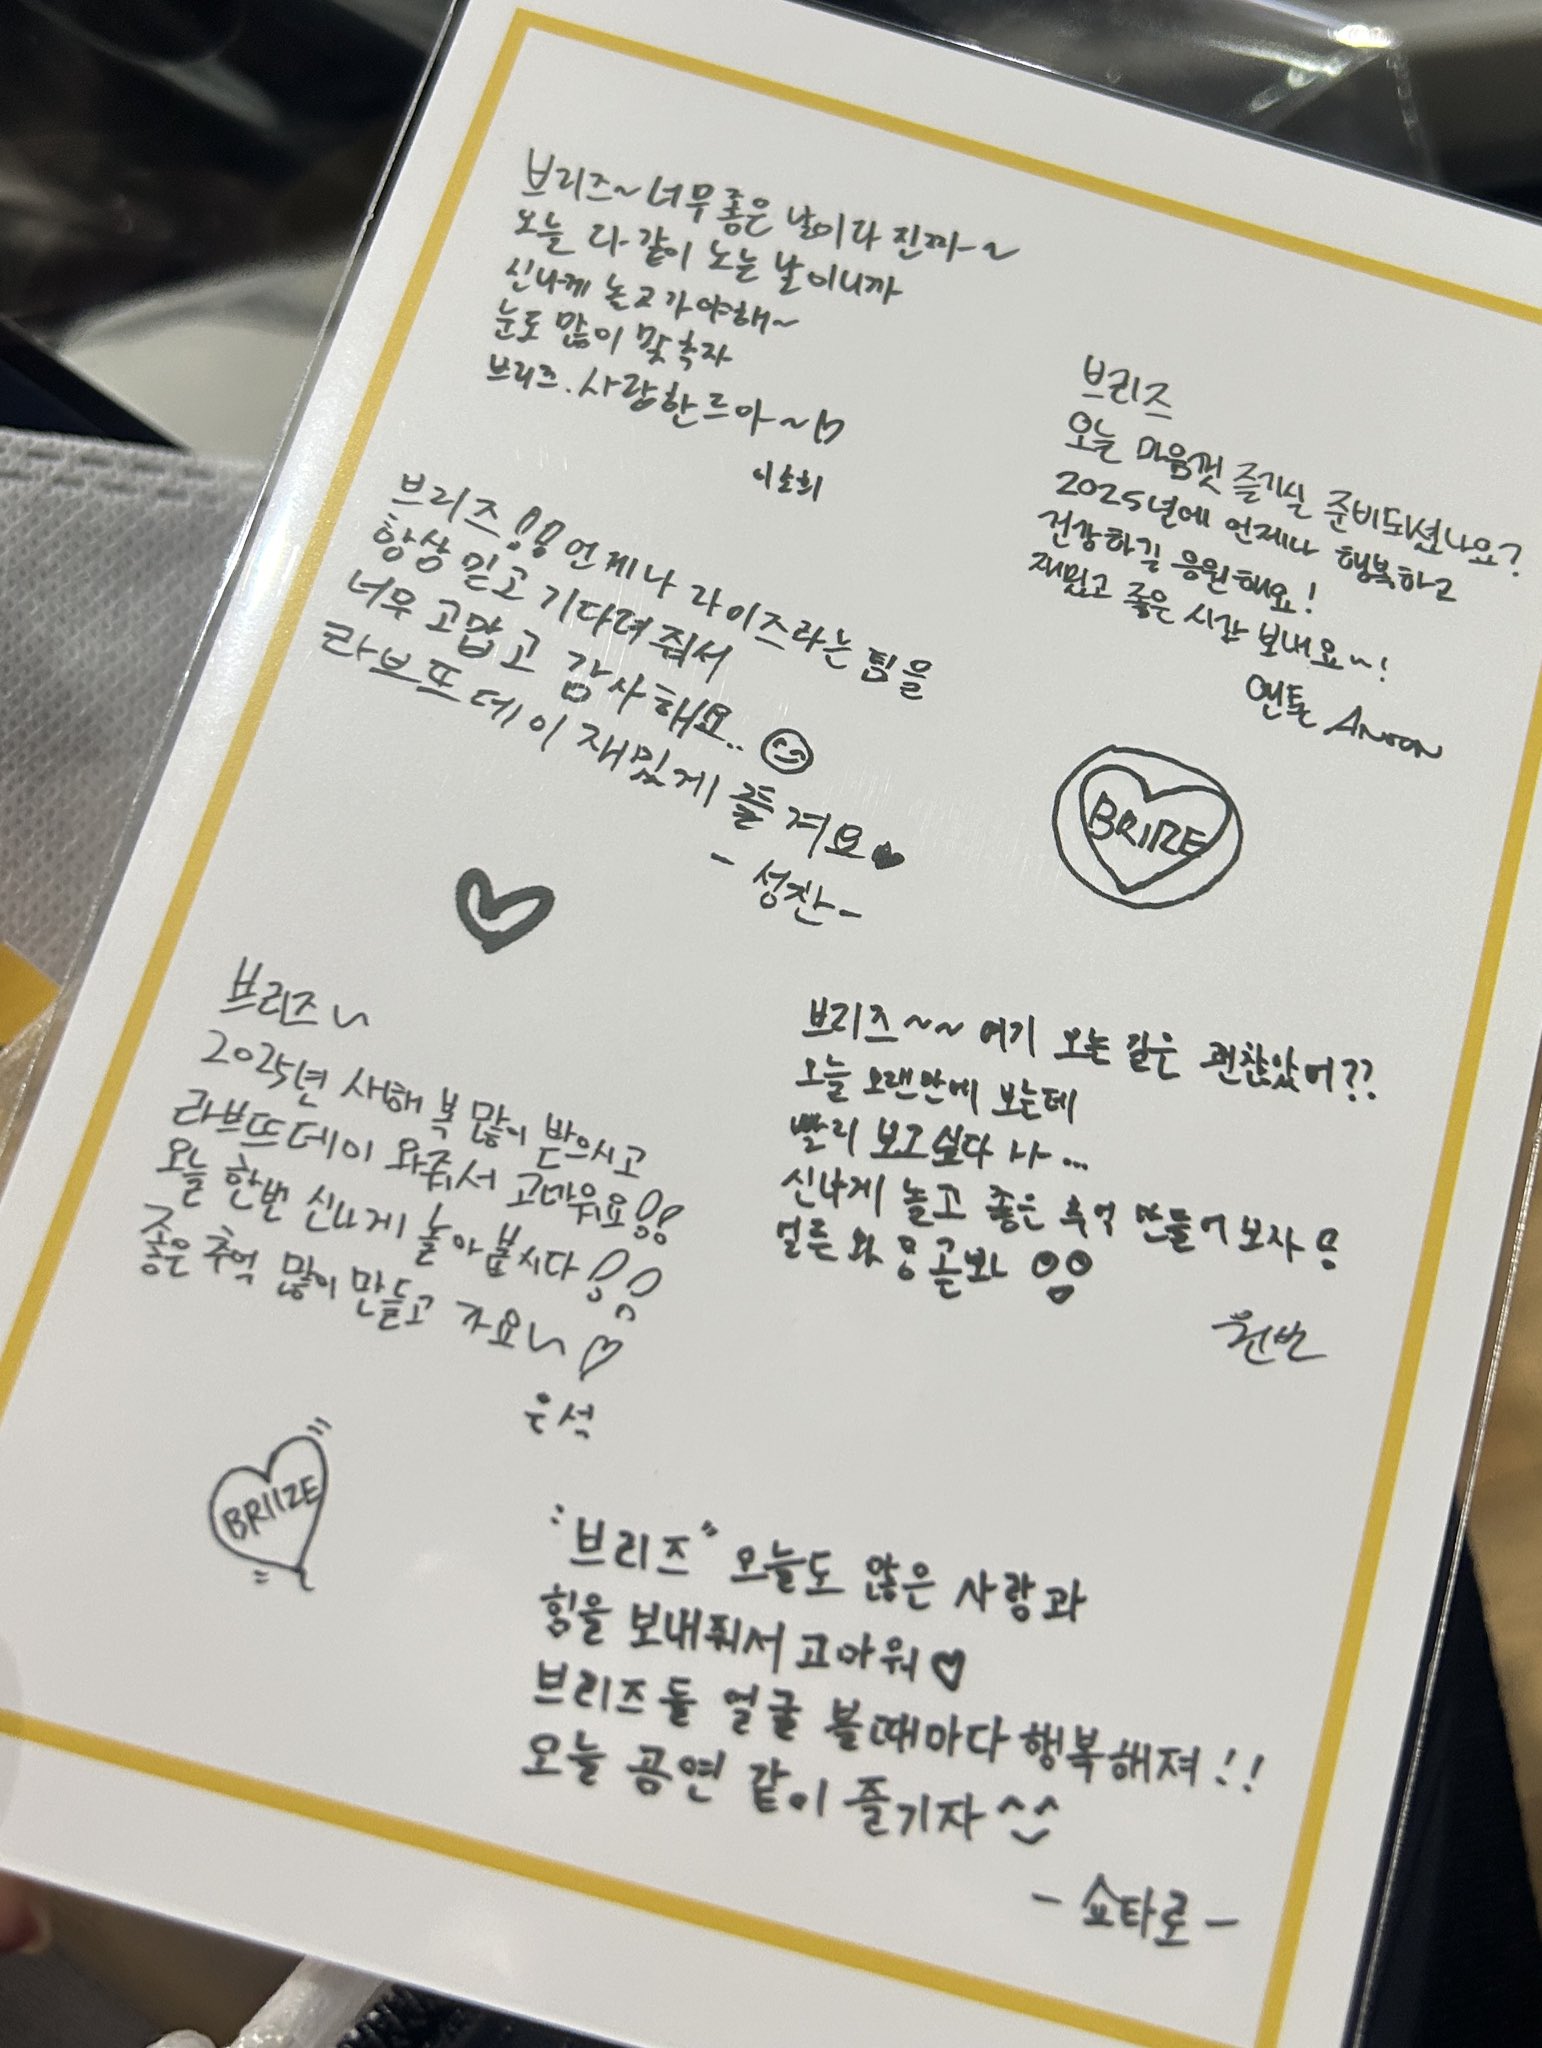 브리즈~너무좋은 날이다 진짜~
오늘 다같이 노는 날이니까
신나게 놀고가야해~
눈도 많이 맞추자
브리즈. 사랑한드아~♡
이소희
브리즈!! 언제나 라이즈라는 팀을
항상 믿고 기다려줘서
너무 고맙고 감사해요..
라브뜨데이 재밌게 즐겨요♥
- 성찬-
브리즈
오늘 마음껏 즐기실 준비되셨나요?
2025년에 언제나 행복하고
건강하길 응원해요!
재밌고 좋은 시간 보내요~!
앤톤 ANTON
BRIIZE
브리즈~
2025년 새해 복 많이 받으시고
라브뜨데이 와줘서 고마워요!!
오늘 한번 신나게 놀아봅시다!!
좋은 추억 많이 만들고 가요~♡
은석
BRIIZE
브리즈~~ 여기 오는 길은 괜찮았어??
오늘 오랜만에 보는데
빨리 보고싶다 나...
신나게 놀고 좋은 추억 만들어보자!
얼른 와! 곧봐!!
원빈
"브리즈" 오늘도 많은 사랑과
힘을 보내줘서 고마워♡
브리즈들 얼굴 볼때마다 행복해져!!
오늘 공연 같이 즐기자^^
- 쇼타로 -